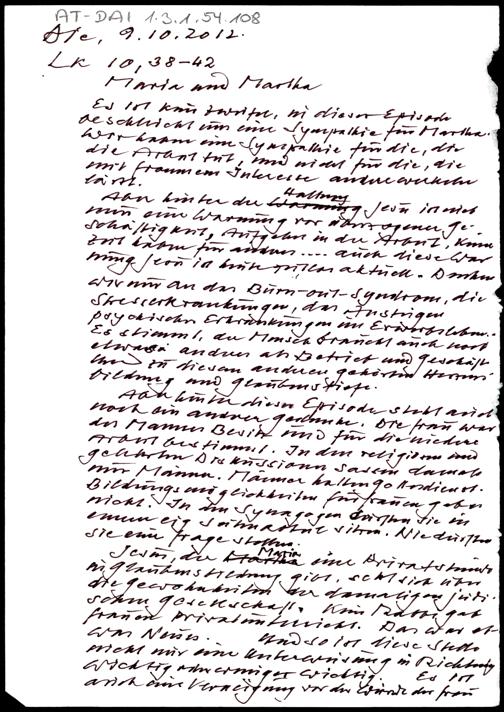 AT-DAI 1.3.1.54.108
Die, 9.10.2012.
Lk 10,38-42
Maria und Martha
Es ist kein Zweifel, in dieser Episode
beschleicht uns eine Sympathie für Martha.
Wir haben eine Sympathie für die, die
die Arbeit tut, und nicht für die, die
mit frommem Interesse andere werkeln
lässt.
Aber hinter der Haltung Jesu ist nicht
nur eine Warnung vor übertriebener Ge-
schäftigkeit, Aufgehen in der Arbeit, keine
Zeit haben für andere .... auch diese War
nung Jesu ist heute aktuell. Denken
wir nur an das Burn-out-Syndrom, die
Stresserkrankungen, das Ansteigen
psychischer Erkrankungen im Erwerbsleben.
Es stimmt, der Mensch braucht auch noch
etwas anderes als Betrieb und Geschäft
Und zu diesem anderen gehören Herzens
bildung und Glaubenstiefe.
Aber hinter dieser Episode steht auch
noch ein anderer Gedanke. Die Frau war
des Mannes Besitz und für die niedere
Arbeit bestimmt. In den religiösen und
gelehrten Diskussionen sassen damals
nur Männer. Männer hielten Gottesdienst.
Bildungsmöglichkeiten für Frauen gab es
nicht. In den Synagogen durften sie in
einem eig. Seitenabteil sitzen. Nie durften
sie eine Frage stellen.
Jesus, der Maria eine Privatstunde
in Glaubensbildung gibt, setzt sich über
die Gewohnheiten der damaligen jüdi-
schen Gesellschaft. Kein Rabbi gab
Frauen Privatunterricht. Das war et-
was Neues. Und so ist diese Stelle
nicht nur eine Unterweisung in Richtung
wichtig oder weniger wichtig. Es ist
auch eine Verneigung vor der Würde der Frau